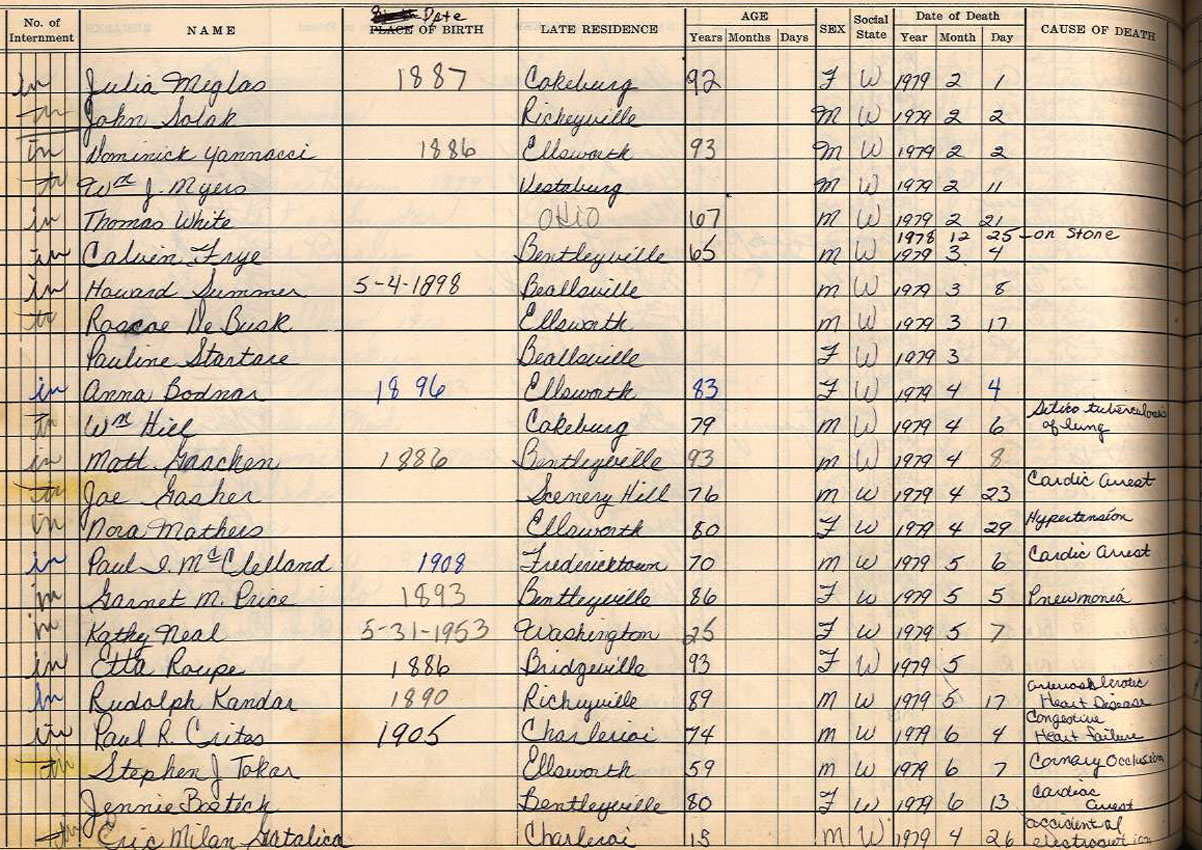 No. of Internment NAME Date PLACE OF BIRTH LATE RESIDENCE AGE Years Months Days SEX Social State Date of Death Year Month Day CAUSE OF DEATH
in Julia Meglas 1887 Cokeburg 92 F W 1979 2 1
John Solak Richeyville M W 1979 2 2
in Dominick Yannacci 1886 Ellsworth 93 M W 1979 2 2
Wm J. Myers Vestaburg M W 1979 2 11
in Thomas White OHIO 67 M W 1979 2 21
1978 12 25 - on Stone
in Calvin Frye Bentleyville 65 M W 1979 3 4
in Howard Summer 5-4-1898 Beallsville M W 1979 3 8
Roscoe De Busk Ellsworth M W 1979 3 17
Pauline Startare Beallsville F W 1979 3
in Anna Bodnar 1896 Ellsworth 83 F W 1979 4 4
in Wm Hill Cokeburg 79 M W 1979 4 6 Silico tuberculosis of lung
in Matt Gaachen 1886 Bentleyville 93 M W 1979 4 8
Joe Gasher Scenery Hill 76 M W 1979 4 23 Cardic Arrest
in Nora Mathers Ellsworth 80 F W 1979 4 29 Hypertension
in Paul I. McClelland 1908 Fredericktown 70 M W 1979 5 6 Cardic Arrest
in Garnet M. Price 1893 Bentleyville 86 F W 1979 5 5 Pneumonia
in Kathy Neal 5-31-1953 Washington 25 F W 1979 5 7
in Etta Roupe 1886 Bridgeville 93 F W 1979 5
in Rudolph Kandar 1890 Richeyville 89 M W 1979 5 17 Heart Disease
in Paul R. Crites 1905 Charleroi 74 M W 1979 6 4 Congestive Heart failure
Stephen J Tokar Ellsworth 59 M W 1979 6 7 Cornary Occlusion
Jennie Bostick Bentleyville 80 F W 1979 6 13 Cardiac arrest
Eric Milan Gatalica Charleroi 15 M W 1979 4 26 accidental electrocution